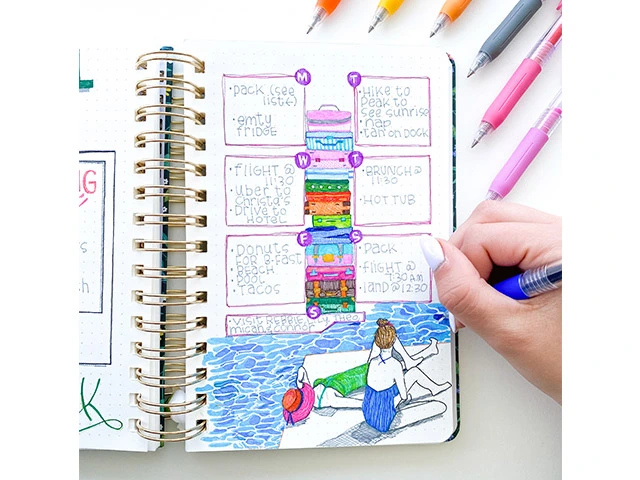 NG
s
ch
k
M
•pack (see
list←)
•emty
fridge
T
•Hike to
peak to
see sunrise
•nap
•tan on dock
W
•flight @
11:30
•uber to
Christa's
•Drive to
Hotel
T
•Brunch @
11:30
•Hot tub
F
•Donuts
for B-fast
•Beach
•Pool
•Tacos
S
•Pack
•flight @
7:30 AM
•land @ 12:30
S
•visit Theo
micah & connor